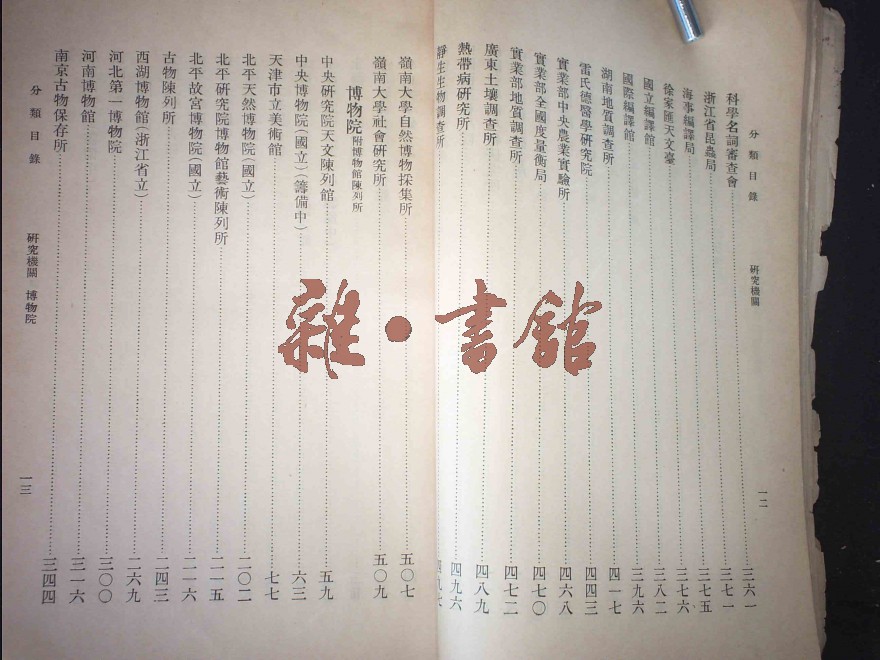 分類目錄　研究機關　一二
科學名詞審查會……三六一
浙江省昆蟲局……三七一
海事編譯局……三七五
徐家匯天文臺……三七六
國立編譯館……三八二
國際編譯館……三九六
湖南地質調查所……四一七
雷氏德醫學研究院……四四三
實業部中央農業實驗所……四六八
實業部全國度量衡局……四七〇
實業部地質調查所……四七二
廣東土壤調查所……四八九
熱帶病研究所……四九六
靜生生物調查所
嶺南大學自然博物採集所……五〇七
嶺南大學社會研究所……五〇九
博物院 附博物館陳列所
中央研究院天文陳列館……五九
中央博物院(國立)(籌備中)……六三
天津市立美術館……七七
北平天然博物院(國立)……二〇二
北平研究院博物館藝術陳列所……二一五
北平故宮博物院(國立)……二一六
古物陳列所……二四三
西湖博物館(浙江省立)……二六九
河北第一博物院……三〇〇
河南博物館……三一六
南京古物保存所……三四四
分類目錄　研究機關　博物院　一三
雜·書館